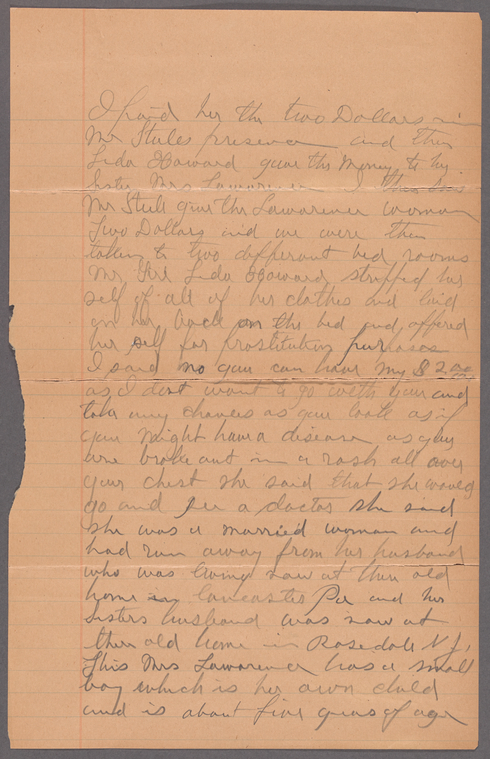 I paid her the two Dollars in
Mr Steels presence and then
Lida Howard gave the Money to her
Sister Mrs Lawarence
Mr Steele give the Lawarence woman
Two Dollars and we were then
taken to two differant bed rooms
Lida Howard stripped her
self of all of her clothes and laid
on her back on the bed and offered
her self for prostitution purposes
I said no you can have my $2 00
as I dont want to go with you and
take any chances as you look as if
you might have a disease as you
are broke out in a rash all over
your chest she said that she would
go and see a doctor she said
she was a married woman and
had run away from her husband
who was living now at their old
home in Lancaster Pa and her
sisters husband was now at
their old home in Rosedale N.J.
This Mrs Lawarence has a small
boy which is her own child
and is about five years of age